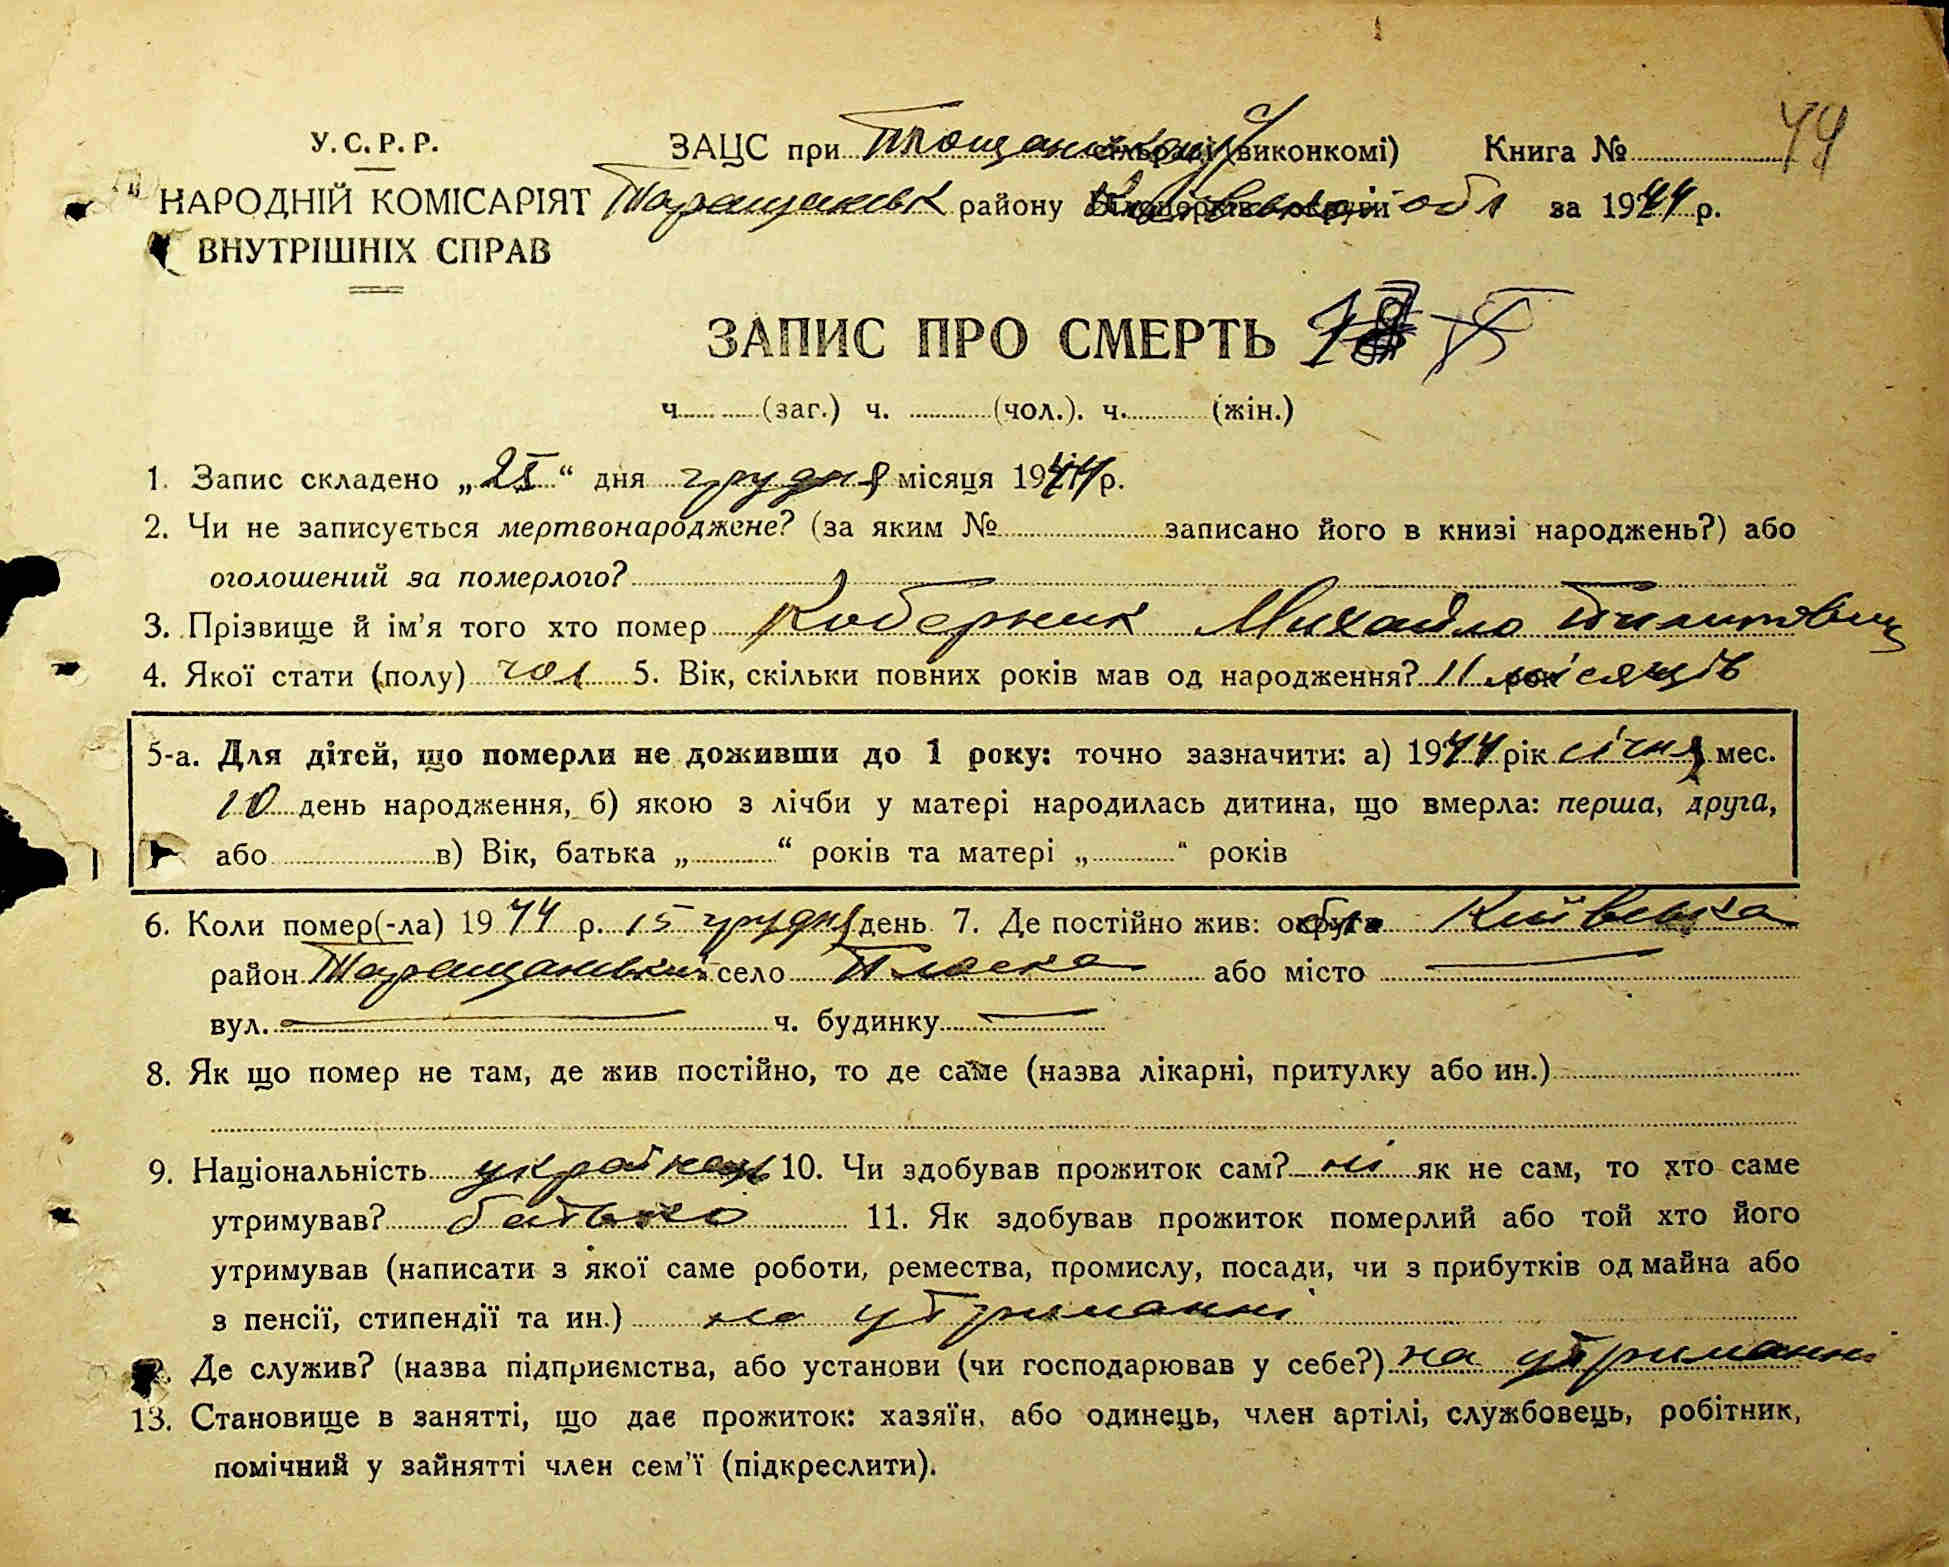 У. С. Р. Р.
НАРОДНІЙ КОМІСАРІЯТ
ВНУТРІШНІХ СПРАВ
ЗАЦС при Площанськ сільраді (виконкомі) Книга №
44
Таращанськ району Київської обл за 1944 р.
ЗАПИС ПРО СМЕРТЬ
ч. (заг.) ч. (чол.). ч. (жін.)
1. Запис складено „ “ дня грудня місяця 1944 р.
2. Чи не записується мертвонароджене? (за яким № записано його в книзі народжень?) або
оголошений за померлого?
3. Прізвище й ім'я того хто помер Коберник Михайло
4. Якої стати (полу) чол 5. Вік, скільки повних років мав од народження? 11 місяців
5-а. Для дітей, що померли не доживши до 1 року: точно зазначити: а) 1944 рік січня мес.
10 день народження, б) якою з лічби у матері народилась дитина, що вмерла: перша, друга,
або в) Вік, батька „ “ років та матері „ “ років
6. Коли помер(-ла) 1944 р. 15 грудня день. 7. Де постійно жив: округа Київська
район Таращанський село Плоска або місто —
вул. — ч. будинку —
8. Як що помер не там, де жив постійно, то де саме (назва лікарні, притулку або ин.)
9. Національність українець 10. Чи здобував прожиток сам? ні як не сам, то хто саме
утримував? батько 11. Як здобував прожиток померлий або той хто його
утримував (написати з якої саме роботи, ремества, промислу, посади, чи з прибутків од майна або
з пенсії, стипендії та ин.) на утриманні
Де служив? (назва підприємства, або установи (чи господарював у себе?) на утриманні
13. Становище в занятті, що дає прожиток: хазяїн, або одинець, член артілі, службовець, робітник,
помічний у зайнятті член сем'ї (підкреслити).